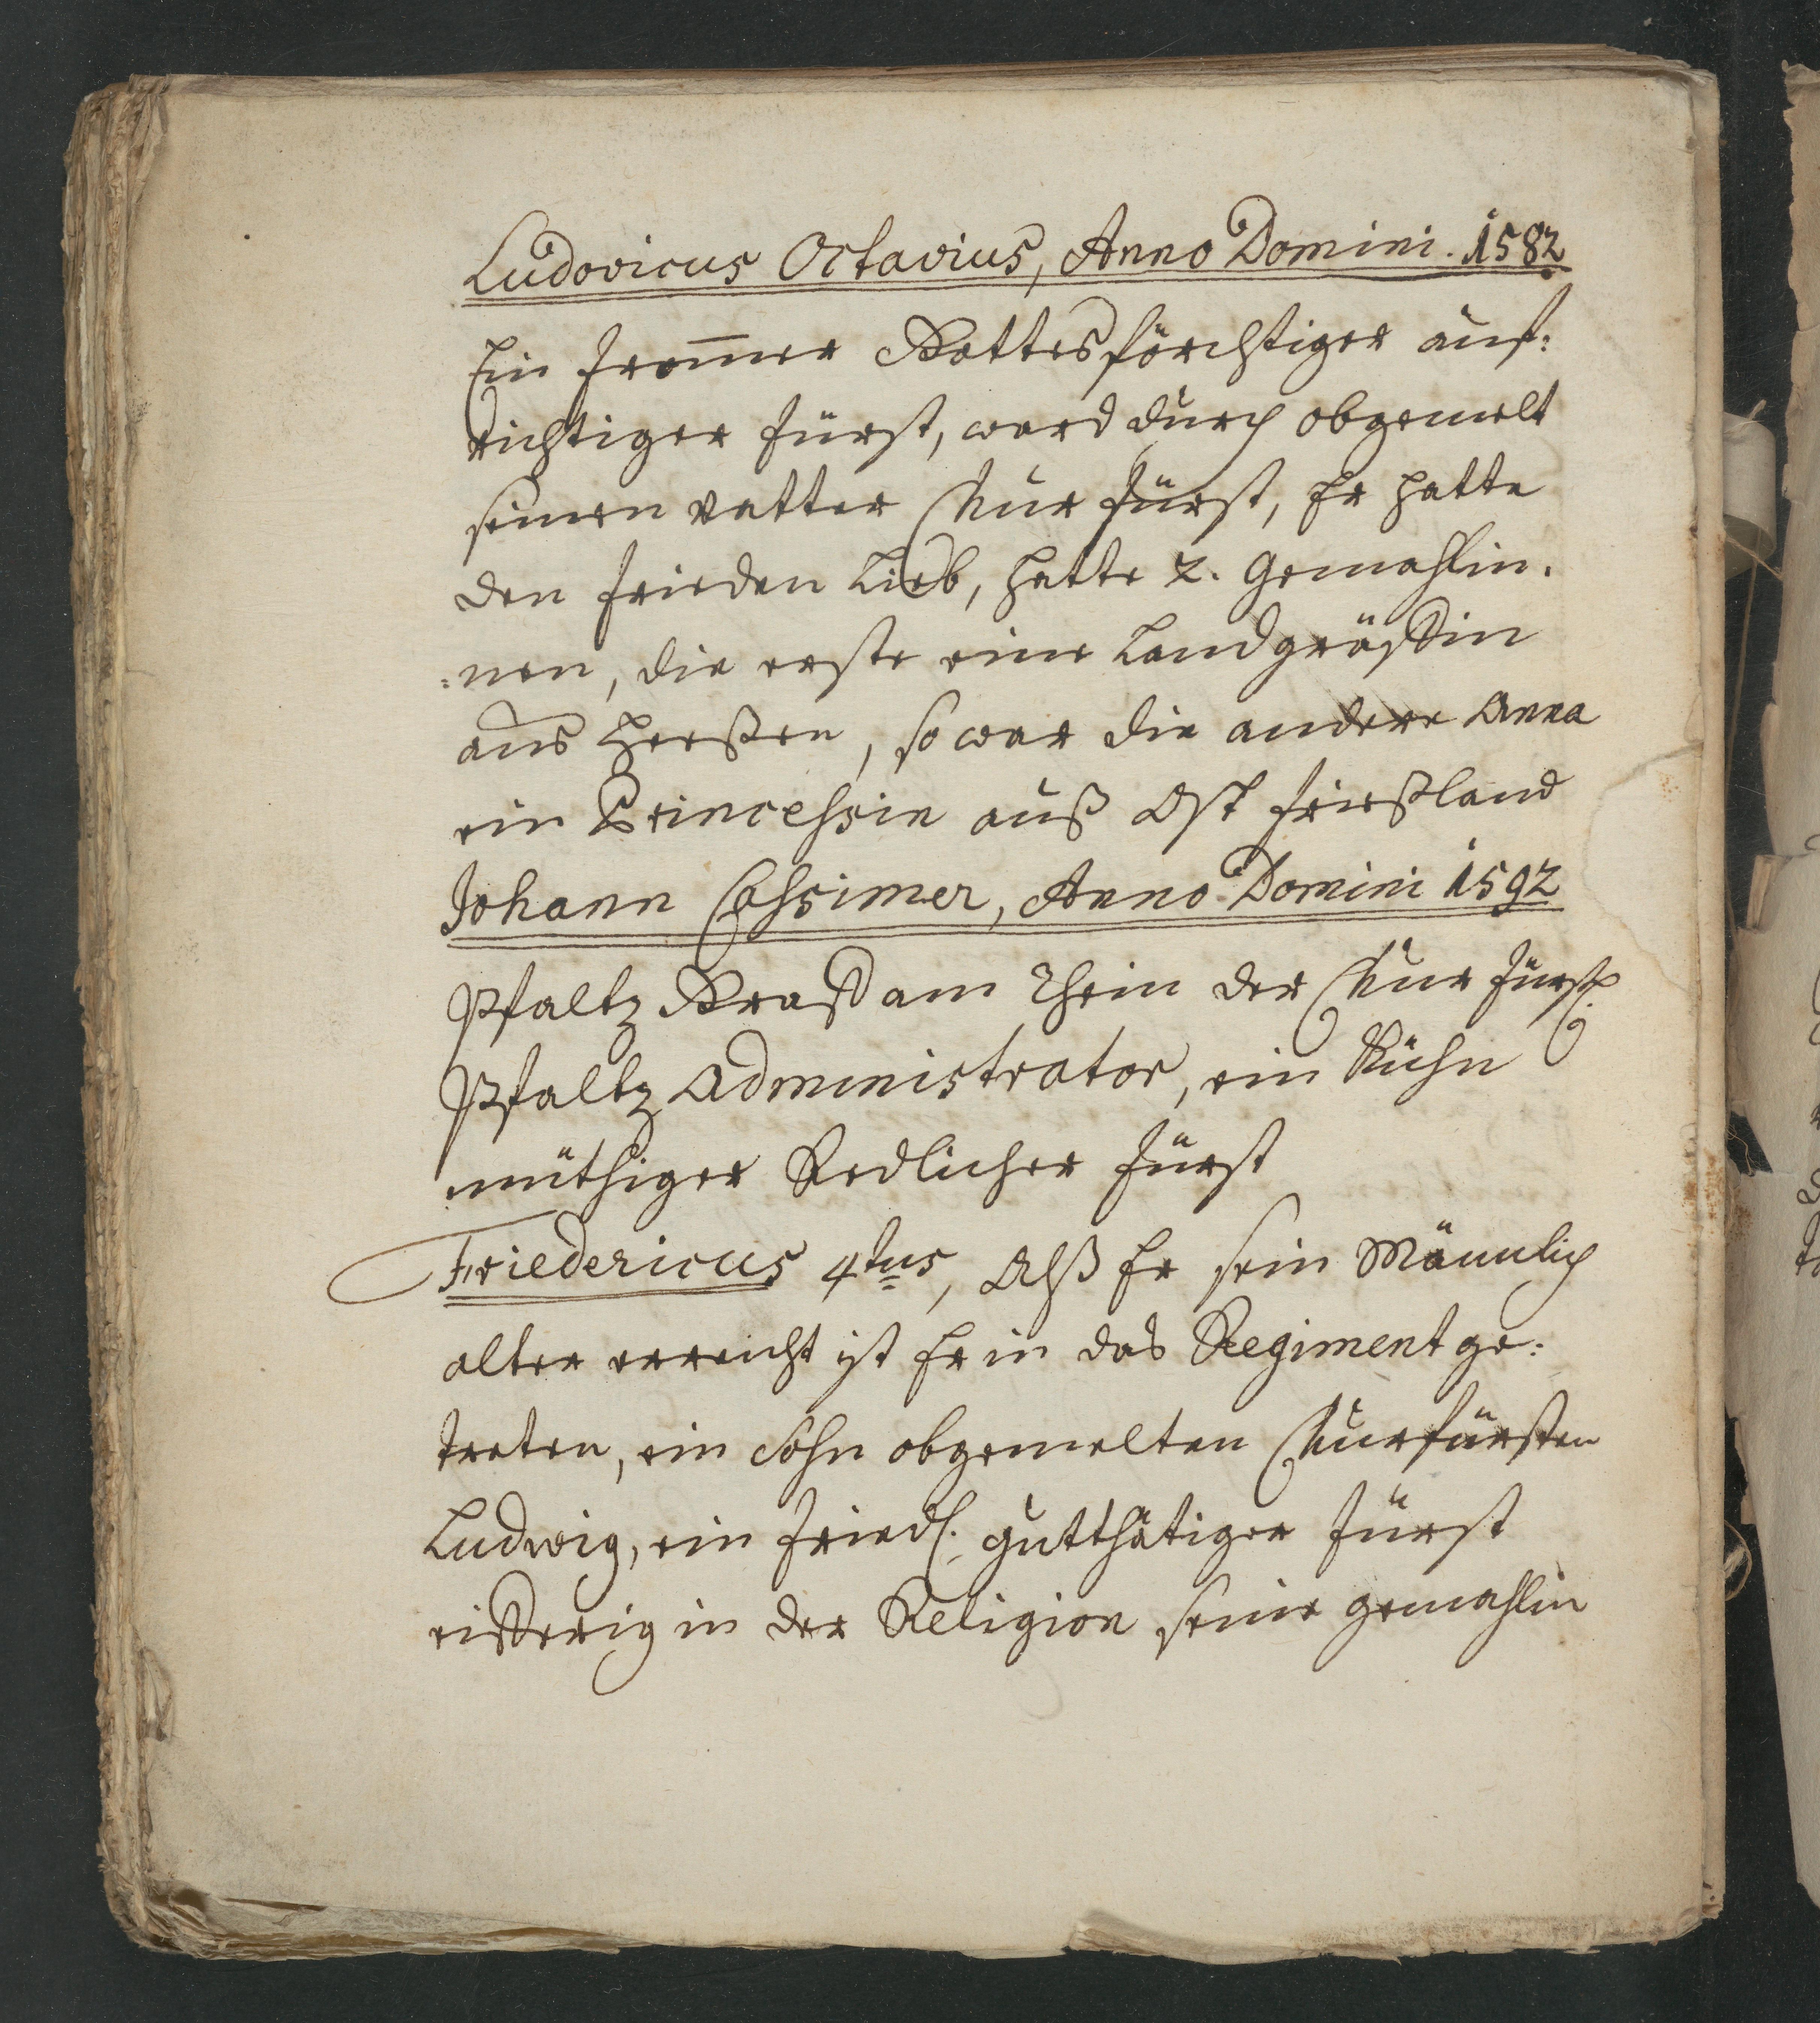 Ludovicus Octavius, Anno Domini. 1582
Ein from̄er Gottesförchtiger auf:
richtiger Fürst, ward durch obgemelt
seinen Vatter Churfürst, Er hatte
den frieden Lieb, hatte 2. Gemahlin.
:nen, die erste eine Landgräffin
aus Heeßen, so war die andere Anna
ein Princessin auß Ost frießland
Johann Cassimer, Anno Domini 1592
Pfaltz Graff am Rhein der Chur fürstl.
Pfaltz Administrator, ein Kühn
müthiger Redlicher Fürst
Friedericus 4tus, Alß Er sein Männlich
alter erreicht ist Er in das Regiment ge:
tretten, ein Sohn obgemelten Churfürsten
Ludwig, ein friedl. gutthätiger Fürst
eifferig in der Religion seine gemahlin